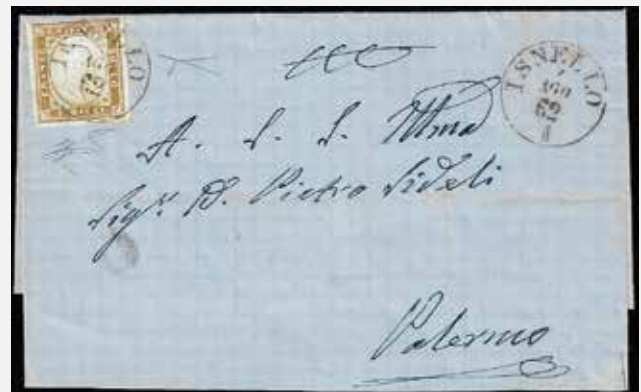 ISNELLO
AGO
62
A. S. S. Illma
Sigr. D. Pietro Fideli
Palermo